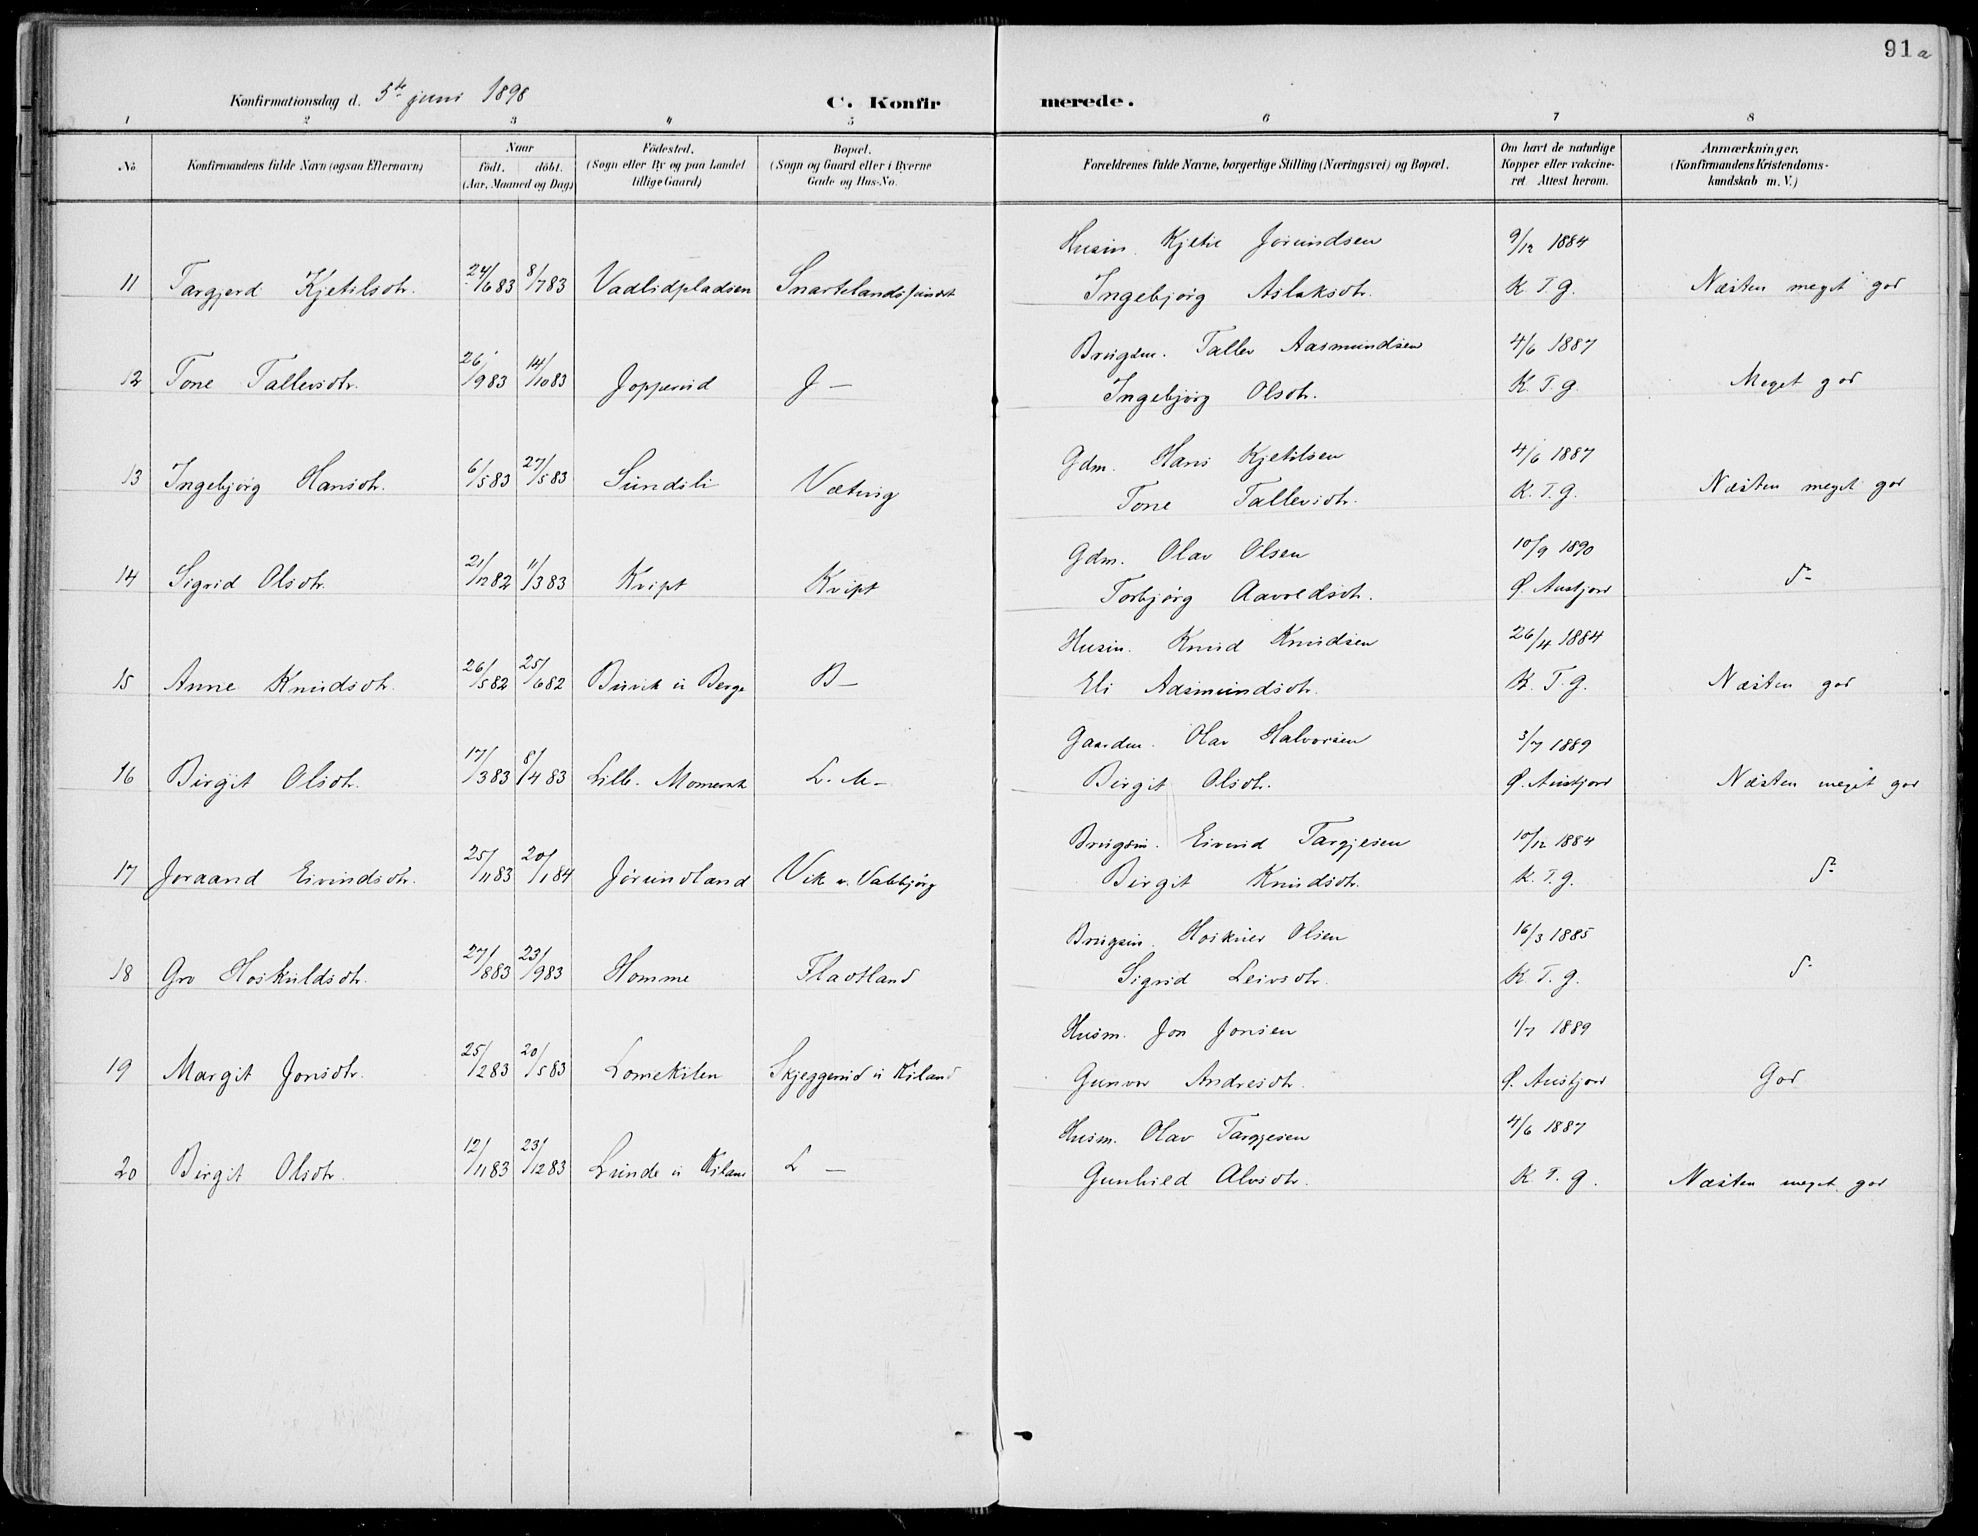 91a
Konfirmationsdag d. 5te juni 1898
C. Konfirmerede.
1 2 3 4 5 6 7 8
No
Konfirmandens fulde Navn (ogsaa Efternavn)
Naar
födt. döbt.
(Aar, Maaned og Dag)
Födested.
(Sogn eller By og paa Landet
tillige Gaard)
Bopæl.
(Sogn og Gaard eller i Byerne
Gade og Hus-No.
Forældrenes fulde Navne, borgerlige Stilling (Næringsvei) og Bopæl.
Om havt de naturlige
Kopper eller vakcine-
ret. Attest herom.
Anmærkninger.
(Konfirmandens Kristendoms-
kundskab m. V.)
Husm. Kjetil Jörundsen 9/12 1884
11 Targjerd Kjetilsdtr. 24/6 83 8/7 83 Vadlidpladsen Snartelandssundet Ingebjörg Aslaksdtr. K. T. G. Næsten meget god
Brugsm. Tallev Aasmundsen 4/6 1887
12 Tone Tallevsdtr. 26/9 83 14/10 83 Joppervid J — Ingebjörg Olsdtr. K. T. G. Meget god
Gdm. Hans Kjetilsen 4/6 1887
13 Ingebjörg Hansdtr. 6/5 83 27/5 83 Sundsli Væting Tone Tallevsdtr. K. T. G. Næsten meget god
Gdm. Olav Olsen 10/9 1890
14 Sigrid Olsdtr. 21/12 82 11/3 83 Kvipt Kvipt Torbjörg Aavoldsdtr. Ø. Austjord d-
Husm. Knud Knudsen 26/4 1884
15 Anne Knudsdtr. 26/5 82 25/6 82 Buvik u Berge B — Eli Aasmundsdtr. K. T. G. Næsten god
Gaardm. Olav Halvorsen 3/7 1889
16 Birgit Olsdtr. 17/3 83 8/4 83 Lille. Momerak L. M — Birgit Olsdtr. Ø. Austjord Næsten meget god
Brugsm. Eivind Targjesen 10/12 1884
17 Joraand Eivindsdtr. 25/11 83 20/1 84 Jörundland Vik u. Valebjörg Birgit Knudsdtr. K. T. G. d-
Brugsm. Hoskuld Olsen 16/3 1885
18 Gro Hoskuldsdtr. 27/8 83 23/9 83 Homme Fladtland Sigrid Leivsdtr. K. T. G. d-
Husm. Jon Jonsen 1/7 1889
19 Margit Jonsdtr. 25/2 83 20/5 83 Lomekilen Skjeggerud u Kiland Gunvor Andresdtr. Ø. Austjord God
Husm. Olav Targjesen 4/6 1887
20 Birgit Olsdtr. 12/11 83 23/12 83 Lunde u Kiland L — Gunhild Alvsdtr. K. T. G. Næsten meget god